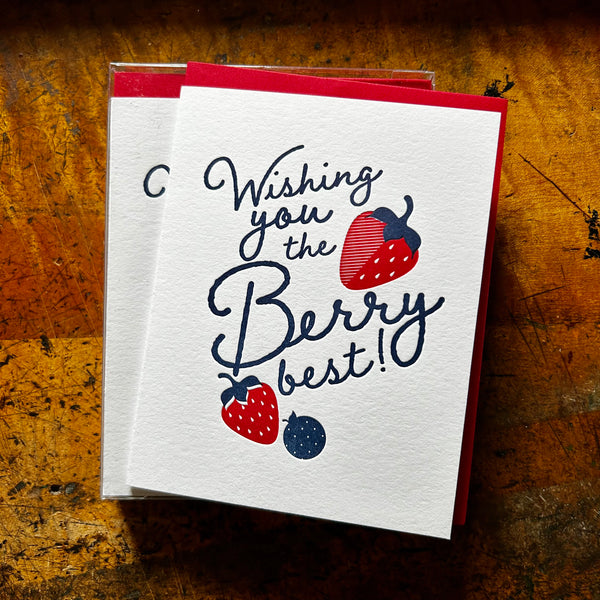 Wishing
you
the
Berry
best!